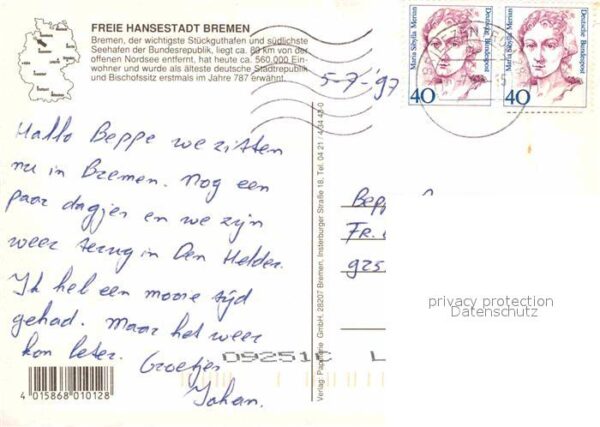 FREIE HANSESTADT BREMEN
Bremen, der wichtigste Stückguthafen und südlichste
Seehafen der Bundesrepublik, liegt ca. 89 km von der
offenen Nordsee entfernt, hat heute ca. 560.000 Ein-
wohner und wurde als älteste deutsche Stadtrepublik
und Bischofssitz erstmals im Jahre 787 erwähnt.
5-7-'97
Hallo Beppe we zitten
nu in Bremen. Nog een
paar dagjes en we zijn
weer terug in Den Helder.
Ik heb een mooie tijd
gehad. Maar het weer
kon beter. Groetjes
Johan.
4 015868 010128
09251C L
Verlag: GmbH, 28207 Bremen, Insterburger Straße 18, Tel. 04 21 / 4 44 42-0
Maria Sibylla Merian
Deutsche Bundespost
40
Maria Sibylla Merian
Deutsche Bundespost
40
Bepp
FR.
925
privacy protection
Datenschutz